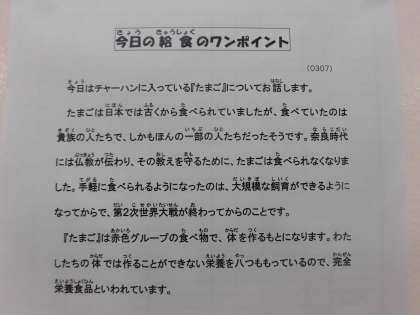 今日の給食のワンポイント
(0307)
今日はチャーハンに入っている『たまご』についてお話します。
たまごは日本では古くから食べられていましたが、食べていたのは
貴族の人たちで、しかもほんの一部の人たちだったそうです。奈良時代
には仏教が伝わり、その教えを守るために、たまごは食べられなくなりま
した。手軽に食べられるようになったのは、大規模な飼育ができるように
なってからで、第2次世界大戦が終わってからのことです。
『たまご』は赤色グループの食べ物で、体を作るもとになります。わた
したちの体では作ることができない栄養を八つももっているので、完全
栄養食品といわれています。